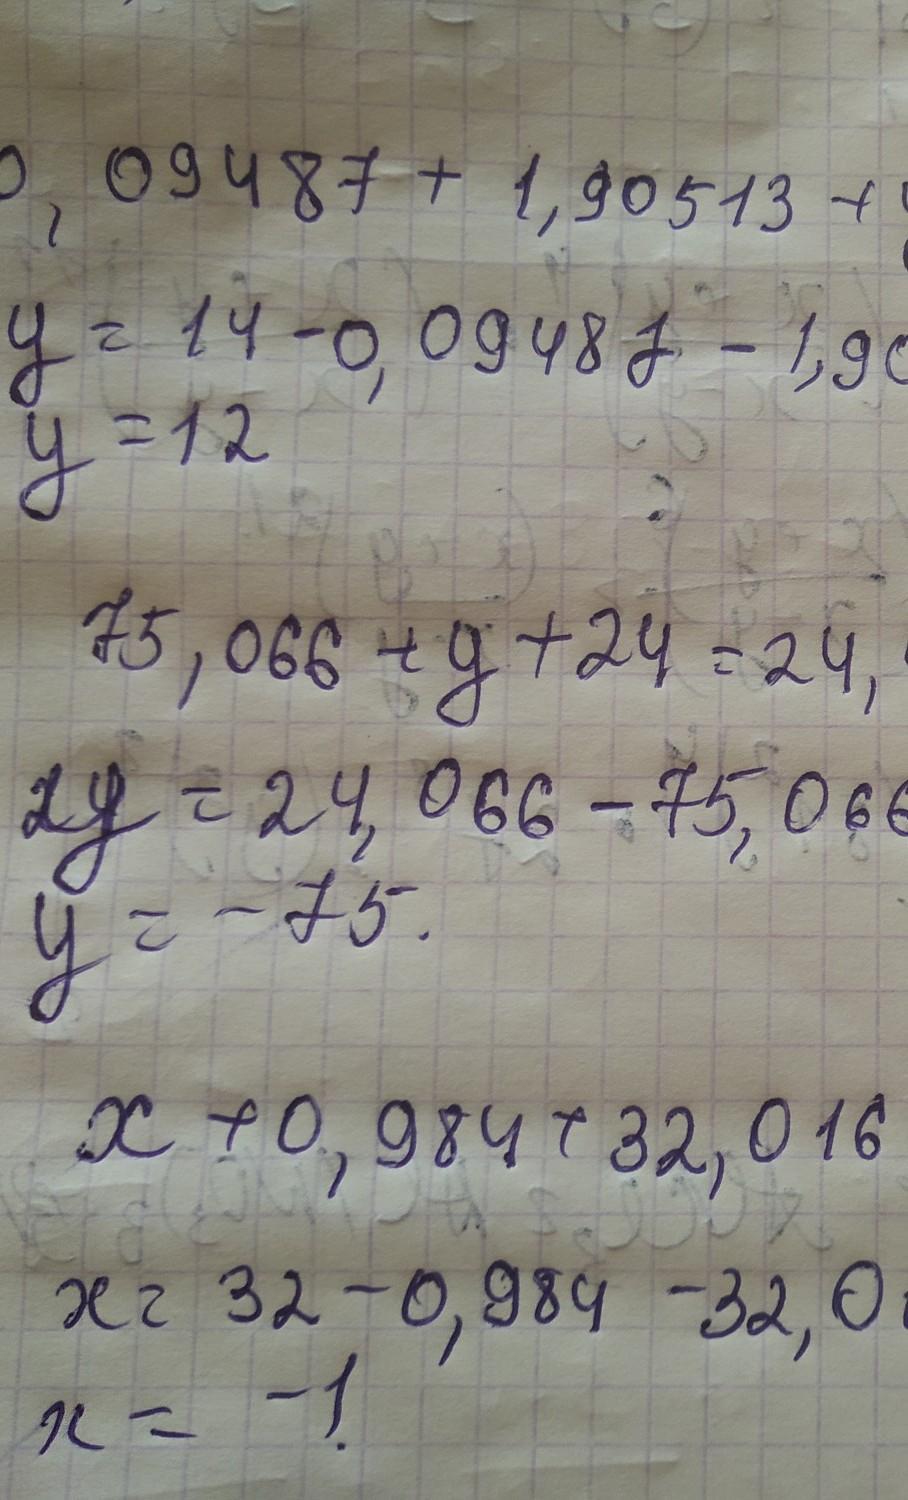 0,09487 + 1,90513 + y
y = 14 - 0,09487 - 1,90
y = 12
75,066 + y + 24 = 24,
2y = 24,066 - 75,066
y = - 75.
x + 0,984 + 32,016
x = 32 - 0,984 - 32,0
x = -1.